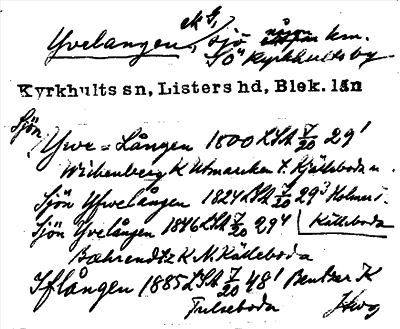 Yvelången, ek G, sjö några km.
SÖ Kyrkhults by.
Kyrkhults sn, Listers hd, Blek. län
Sjön
Ywe=Lången 1800 LSA 7/20 29¹
Wickenberg K Utmarcken t. Kjätteboda m.
Sjön Yfwelången 1824 LSA 7/20 29³ Holmer
Sjön Yvelången 1846 LSA 7/20 29⁴ Kätteboda
Bæhrendtz K N. Kätteboda
Iflången 1885 LSA 7/20 48¹ Bentzer K
Tulseboda